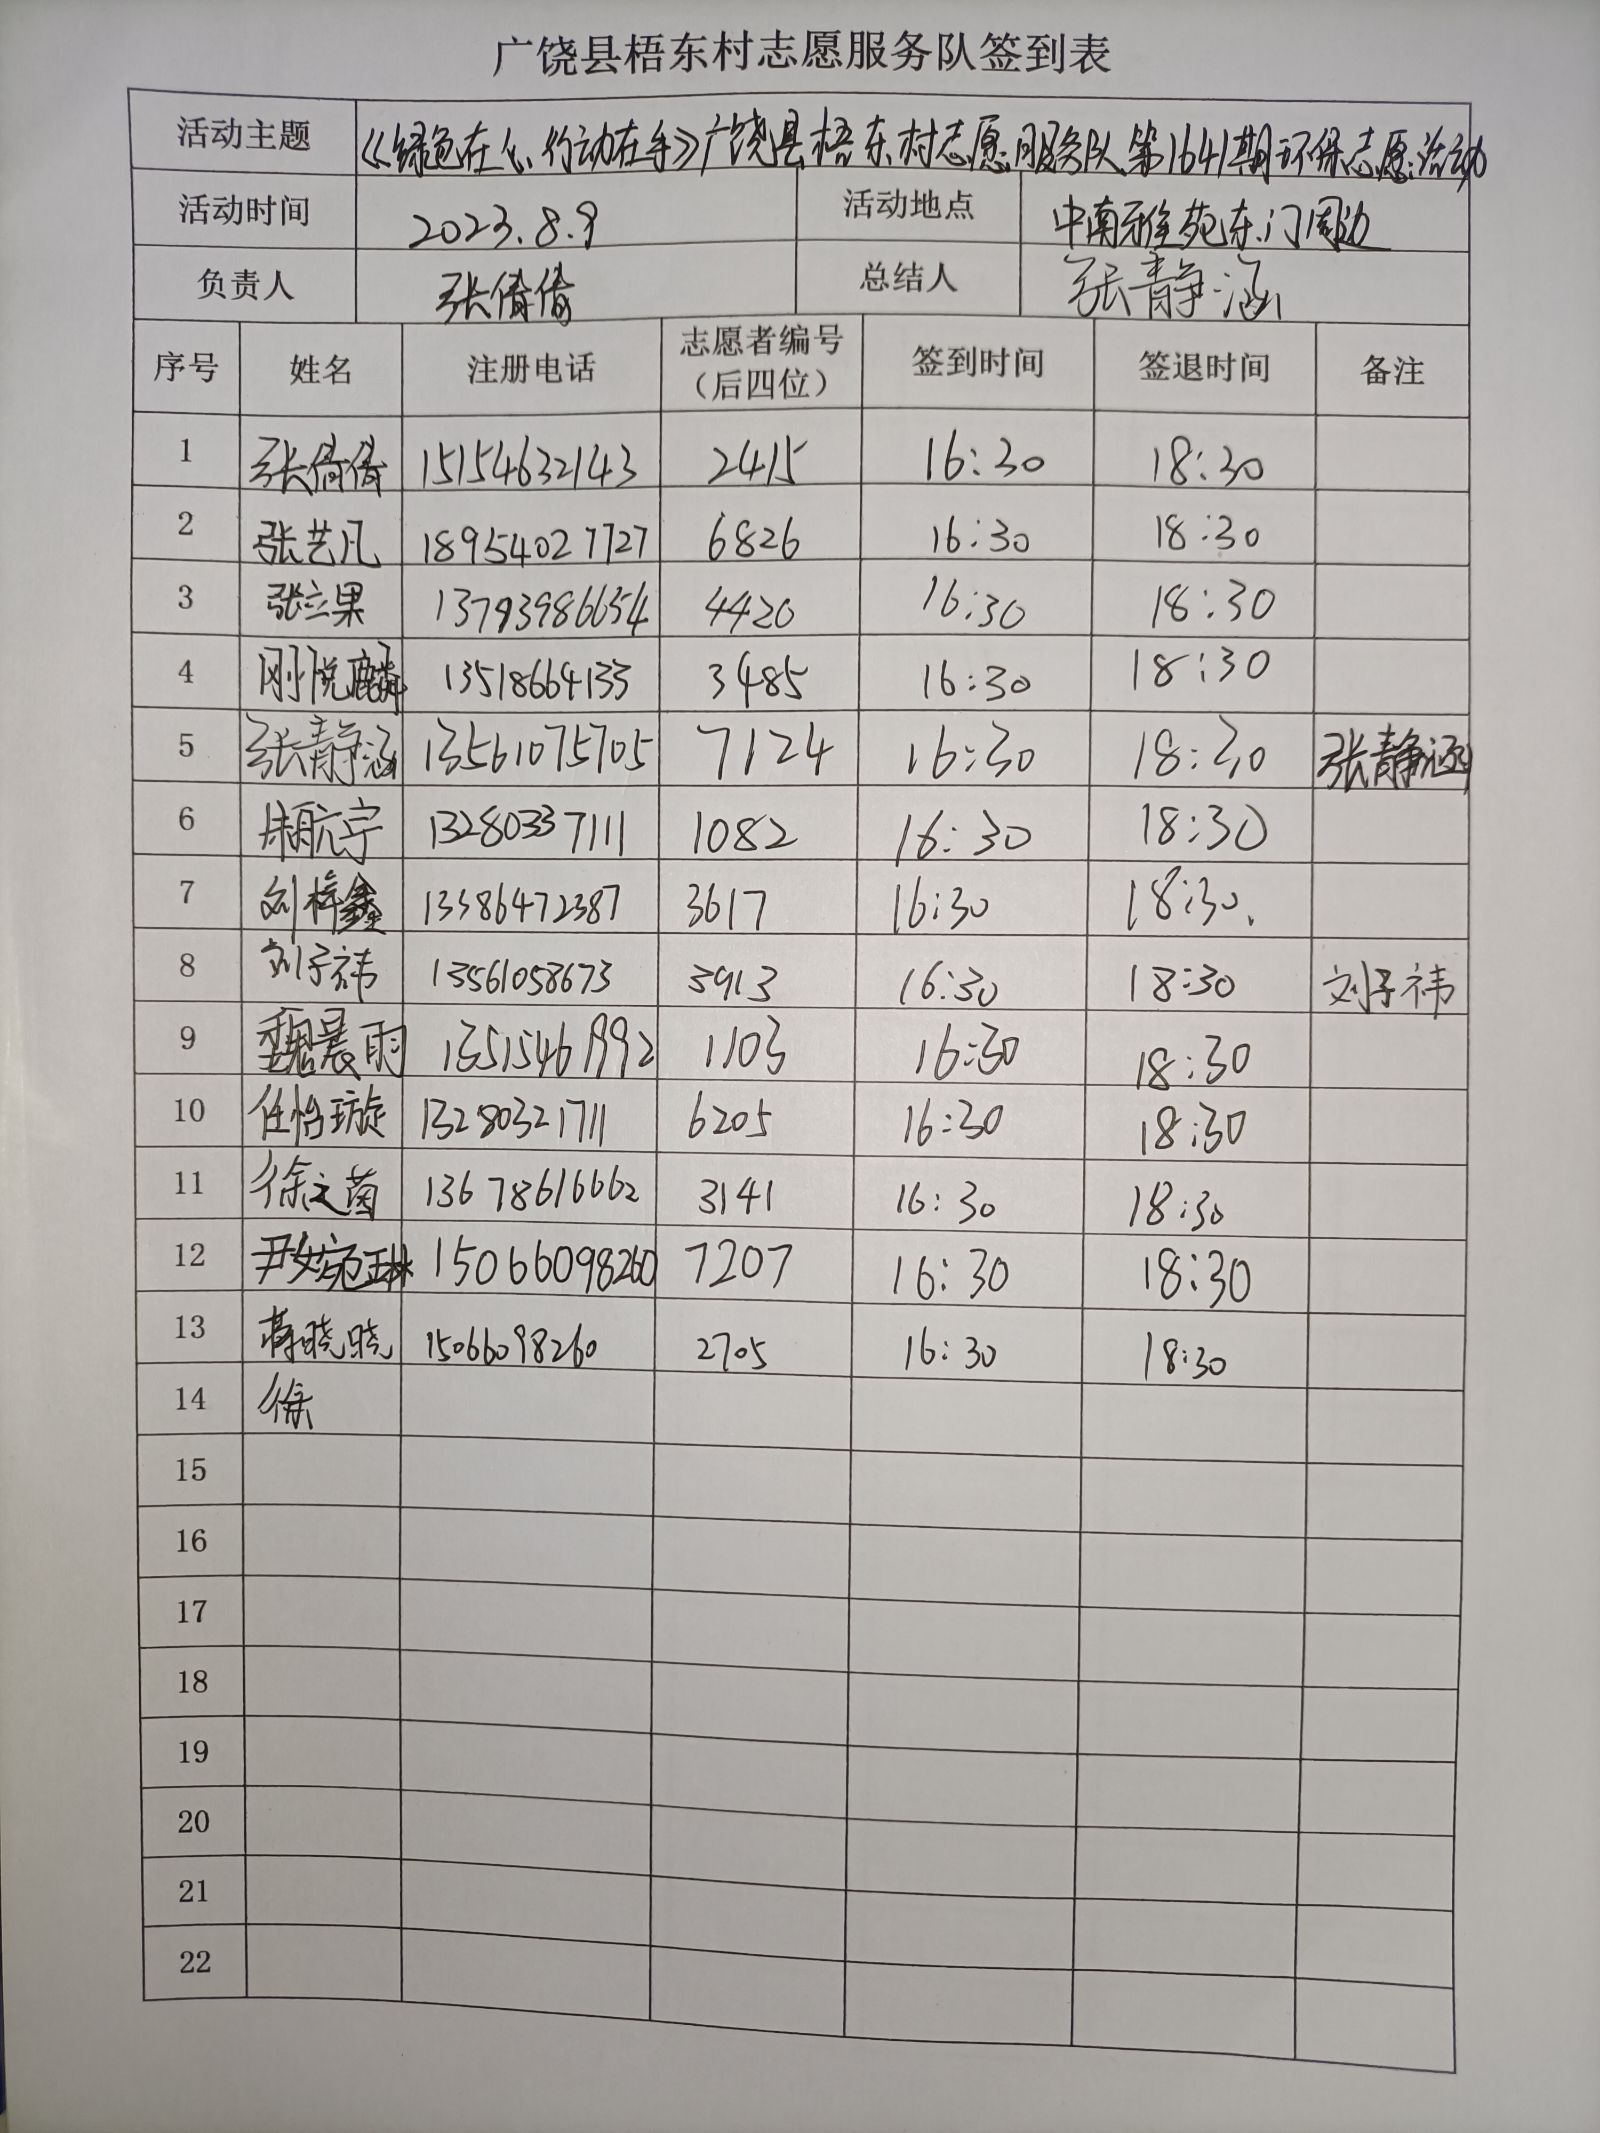 广饶县梧东村志愿服务队签到表
活动主题 《绿色在心、行动在手》广饶县梧东村志愿服务队第1641期环保志愿活动
活动时间 2023.8.9 活动地点 中南雅苑东门周边
负责人 张倩倩 总结人 张静涵
序号 姓名 注册电话 志愿者编号（后四位） 签到时间 签退时间 备注
1 张倩倩 15154632143 2415 16:30 18:30
2 张艺凡 18954027727 6826 16:30 18:30
3 张立果 13793986654 4420 16:30 18:30
4 刚悦麟 13518664133 3485 16:30 18:30
5 张静涵 13561075705 7124 16:30 18:30 张静涵
6 航宁 13280337111 1082 16:30 18:30
7 刘梓鑫 13386472387 3617 16:30 18:30.
8 刘子祎 13561058673 3913 16:30 18:30 刘子祎
9 魏晨雨 13515461992 1103 16:30 18:30
10 任怡璇 13280321711 6205 16:30 18:30
11 徐之茵 13678616662 3141 16:30 18:30
12 尹婉琳 15066098260 7207 16:30 18:30
13 蒋晓晓 15066098260 2705 16:30 18:30
14 徐
15
16
17
18
19
20
21
22